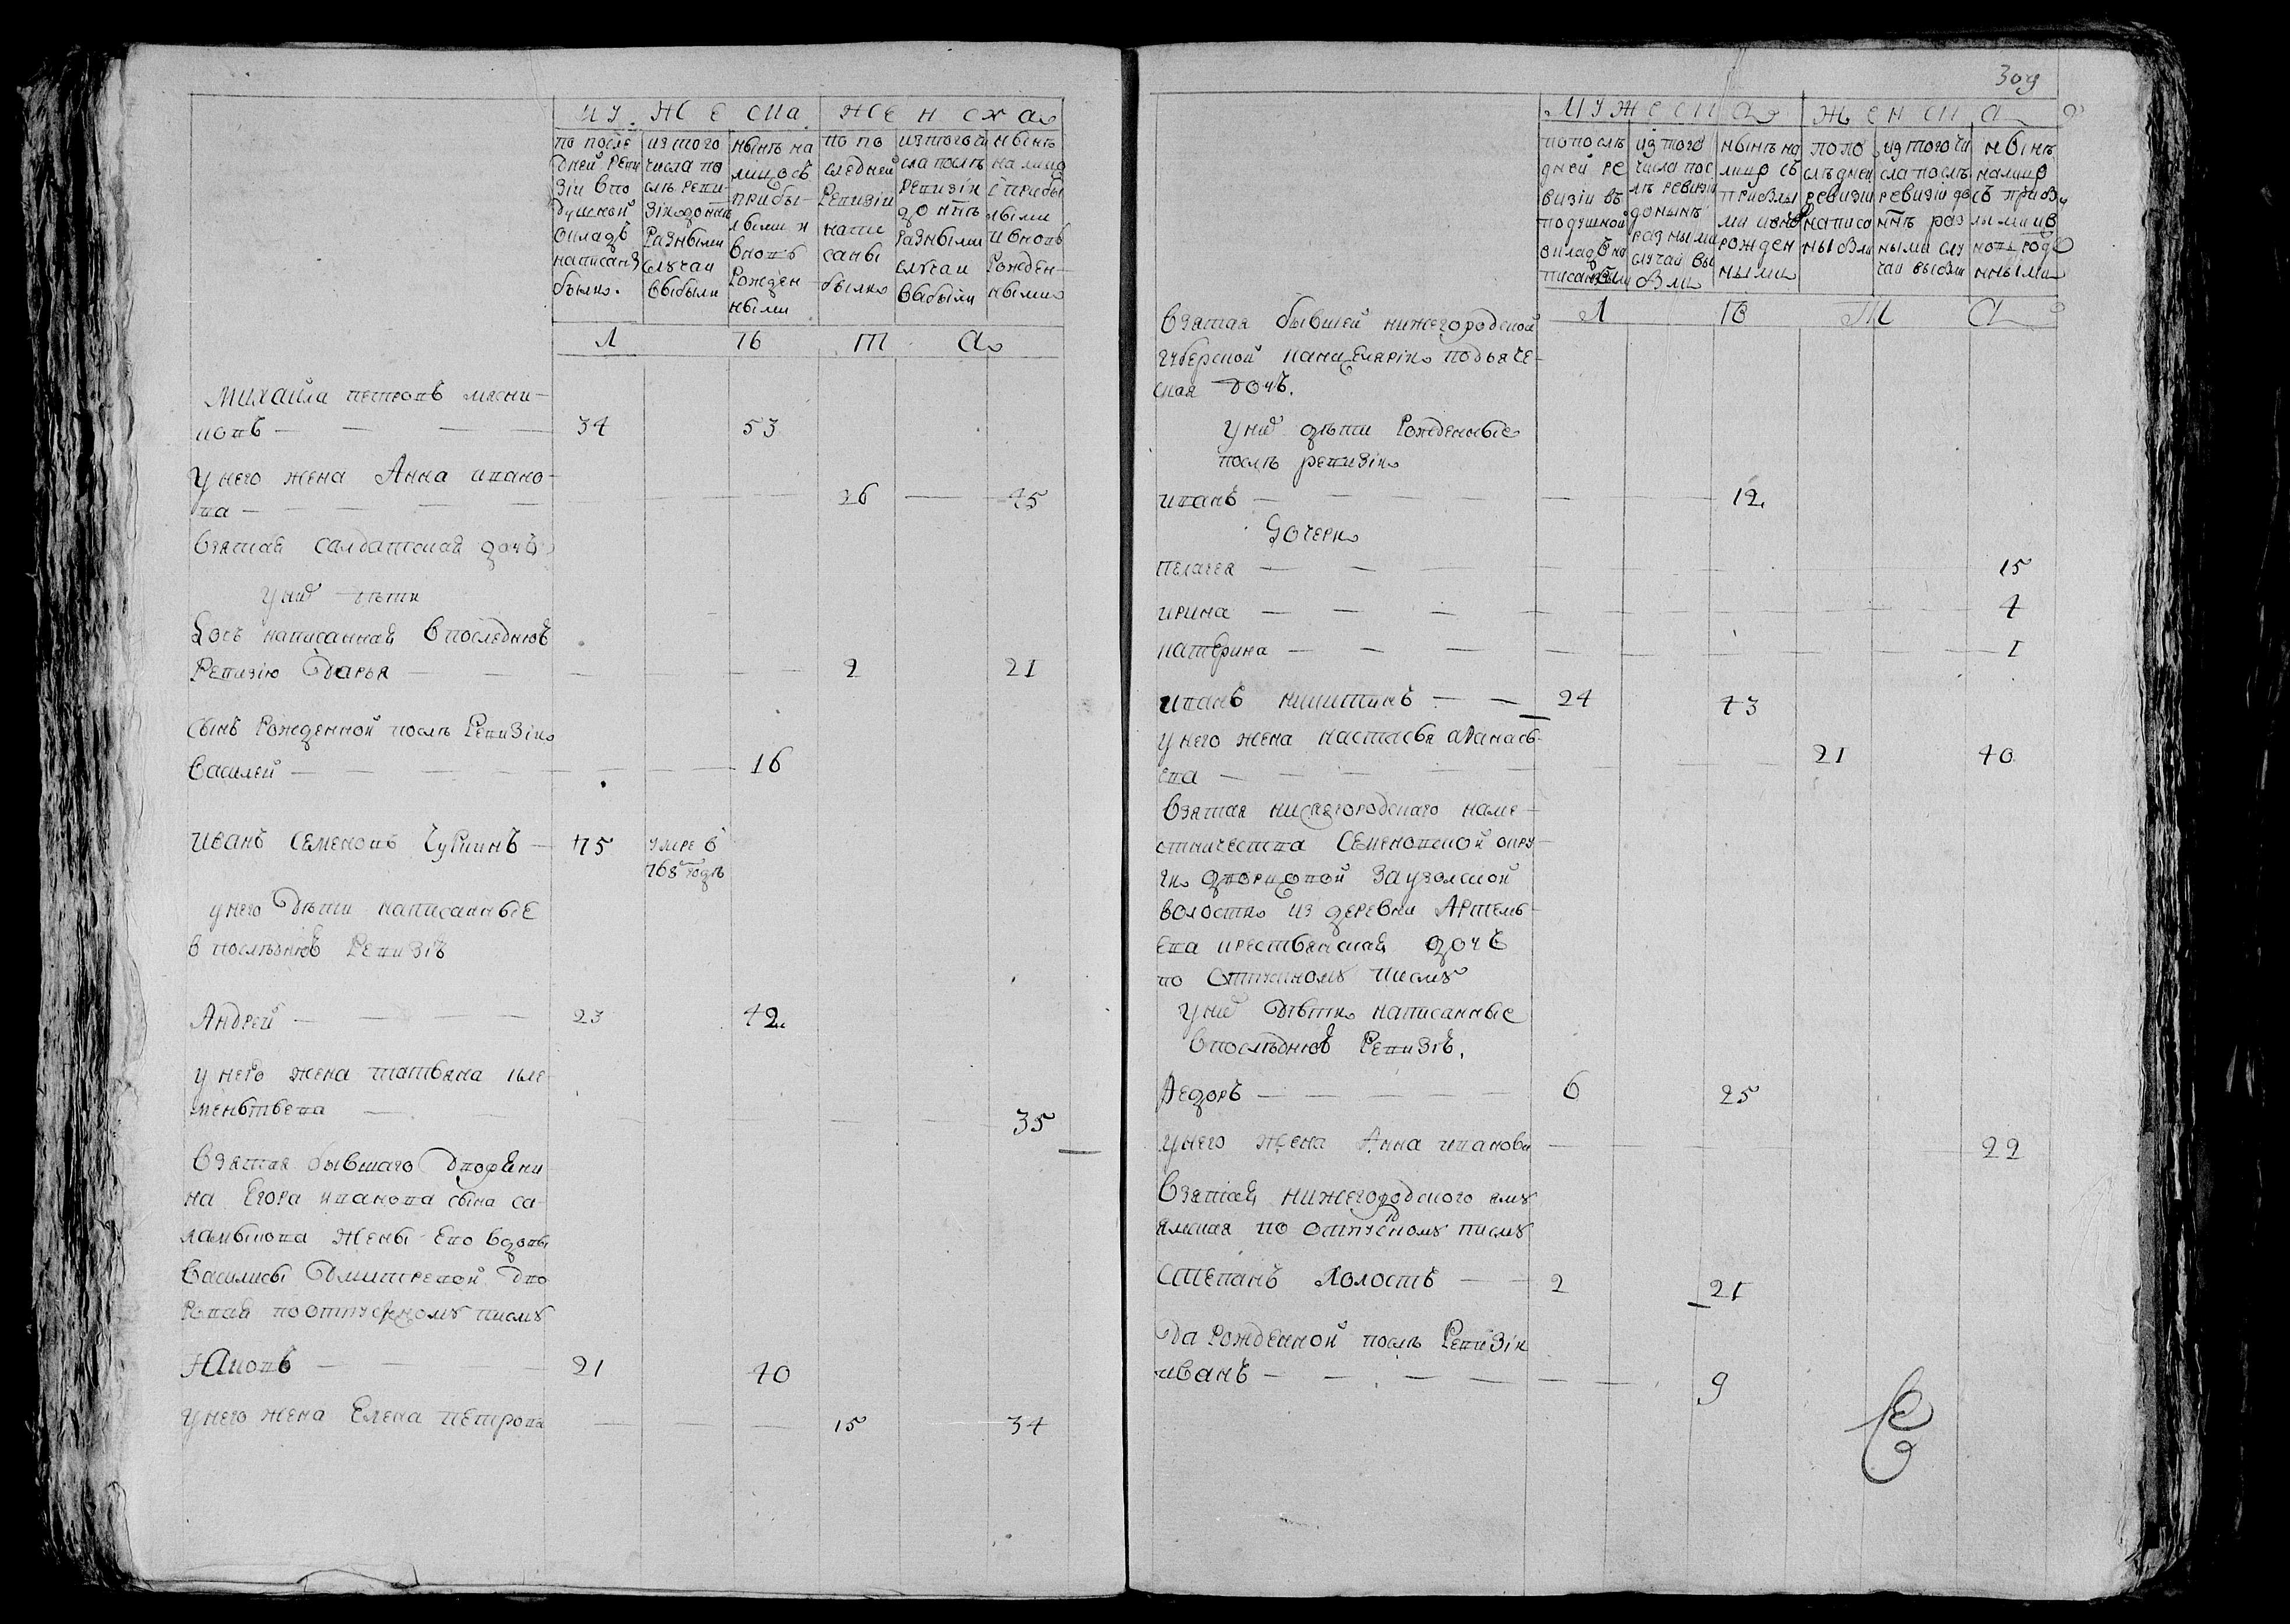 мужеска женска
по после
дней реви
зіи в по
душной
окладъ
написанo
было.
из того
числа по
слѣ реви-
зіи до ннѣ
разными
случаи
выбыли
нынѣ на
лицо съ
прибы-
лыми и
вновь
рожден-
ными
по по
следней
ревизіи
напи
саны
было
из того чи
сла послѣ
ревизіи
до ннѣ
разными
случаи
выбыли
нынѣ
на лицо
с прибы
лыми
и вновь
рожден-
ными
л ѣ т а
Михаила петровъ мясни-
ковъ — 34 53
у него жена Анна ивано-
ва — 26 — 45
взятая салдатская дочь
у них дѣти
дочь написанная в последнюю
ревизію Дарья — 2 21
сынъ рожденной послѣ ревизіи
Василей — 16
Иванъ Семеновъ Чуркинъ — 75 умре в
768 годѣ
у него дѣти написанные
в послѣднюю ревизію
Андрей — 23 42
у него жена татьяна кле
меньтьева — 35
взятая бывшаго дворяни
на Егора иванова сына са
ламыкова жены ево вдовы
Василисы Дмитревой дво
ровая по отпускному писму
Яковъ — 21 40
у него жена Елена петрова — 15 34
309
мужеска женска
по послѣ
дней ре
визіи въ
подушной
окладъ на
писано было
из того
числа пос
лѣ ревизіи
до нынѣ
разными
случаи вы
были
нынѣ на
лицо съ
прибылы
ми и вновь
рожден
ными
по по
слѣдней
ревизіи
написа
ны были
из того чи
сла послѣ
ревизіи до
ннѣ раз
ными слу
чаи выбыли
нынѣ
на лицо
съ прибы
лыми и в
новь рожде
нными
л ѣ т а
взятая бывшей нижегородской
губерской канцеляріи подьяче-
ская дочь.
у них дѣти рожденные
послѣ ревизіи
иванъ — 12
дочери
пелагея — 15
ирина — 4
катерина — 1
иванъ никитинъ — 24 43
у него жена настасья афанась-
ева — 21 40
взятая нижегородскаго наме-
стничества Семеновской окру-
ги дворцовой заузолской
волости из деревни Артемь-
ева крестьянская дочь
по отпускному писму
у них дѣти написанные
в послѣднюю ревизію.
Федоръ — 6 25
у него жена Анна иванова — 22
взятая нижегородского яму
ямская по отпускному писму
Степанъ холостъ — 2 21
да рожденной послѣ ревизіи
иванъ — 9